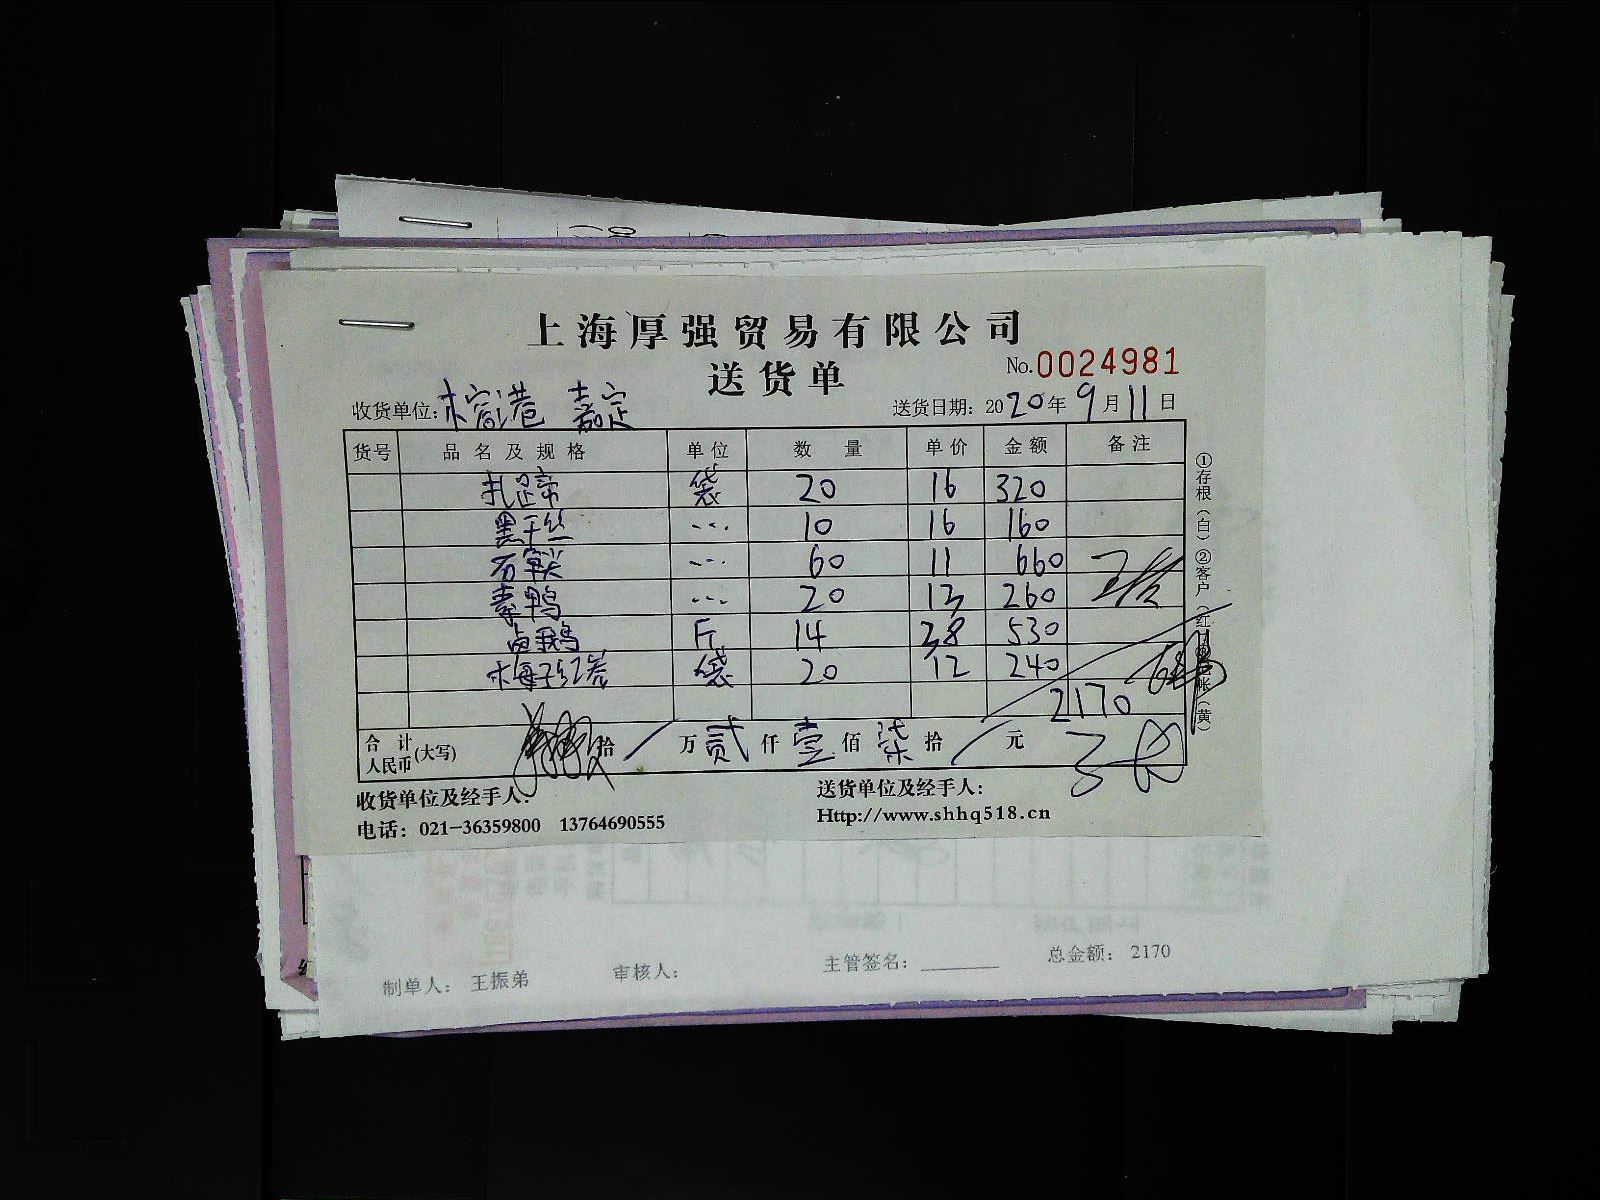 上海厚强贸易有限公司
送货单
No.0024981
收货单位: 嘉定
送货日期: 2020年9月11日
货号 品名及规格 单位 数量 单价 金额 备注
扎蹄 袋 20 16 320
黑干丝 ... 10 16 160
... 60 11 660
素鸭 ... 20 13 260
卤鹅 斤 14 38 530
梅子红 袋 20 12 240
2170
合计人民币(大写) 拾 / 万 贰 仟 壹 佰 柒 拾 / 元
收货单位及经手人:
送货单位及经手人:
电话: 021-36359800 13764690555
Http://www.shhq518.cn
①存根(白)②客户(红
帐(黄)
制单人: 王振弟 审核人: 主管签名: 总金额: 2170